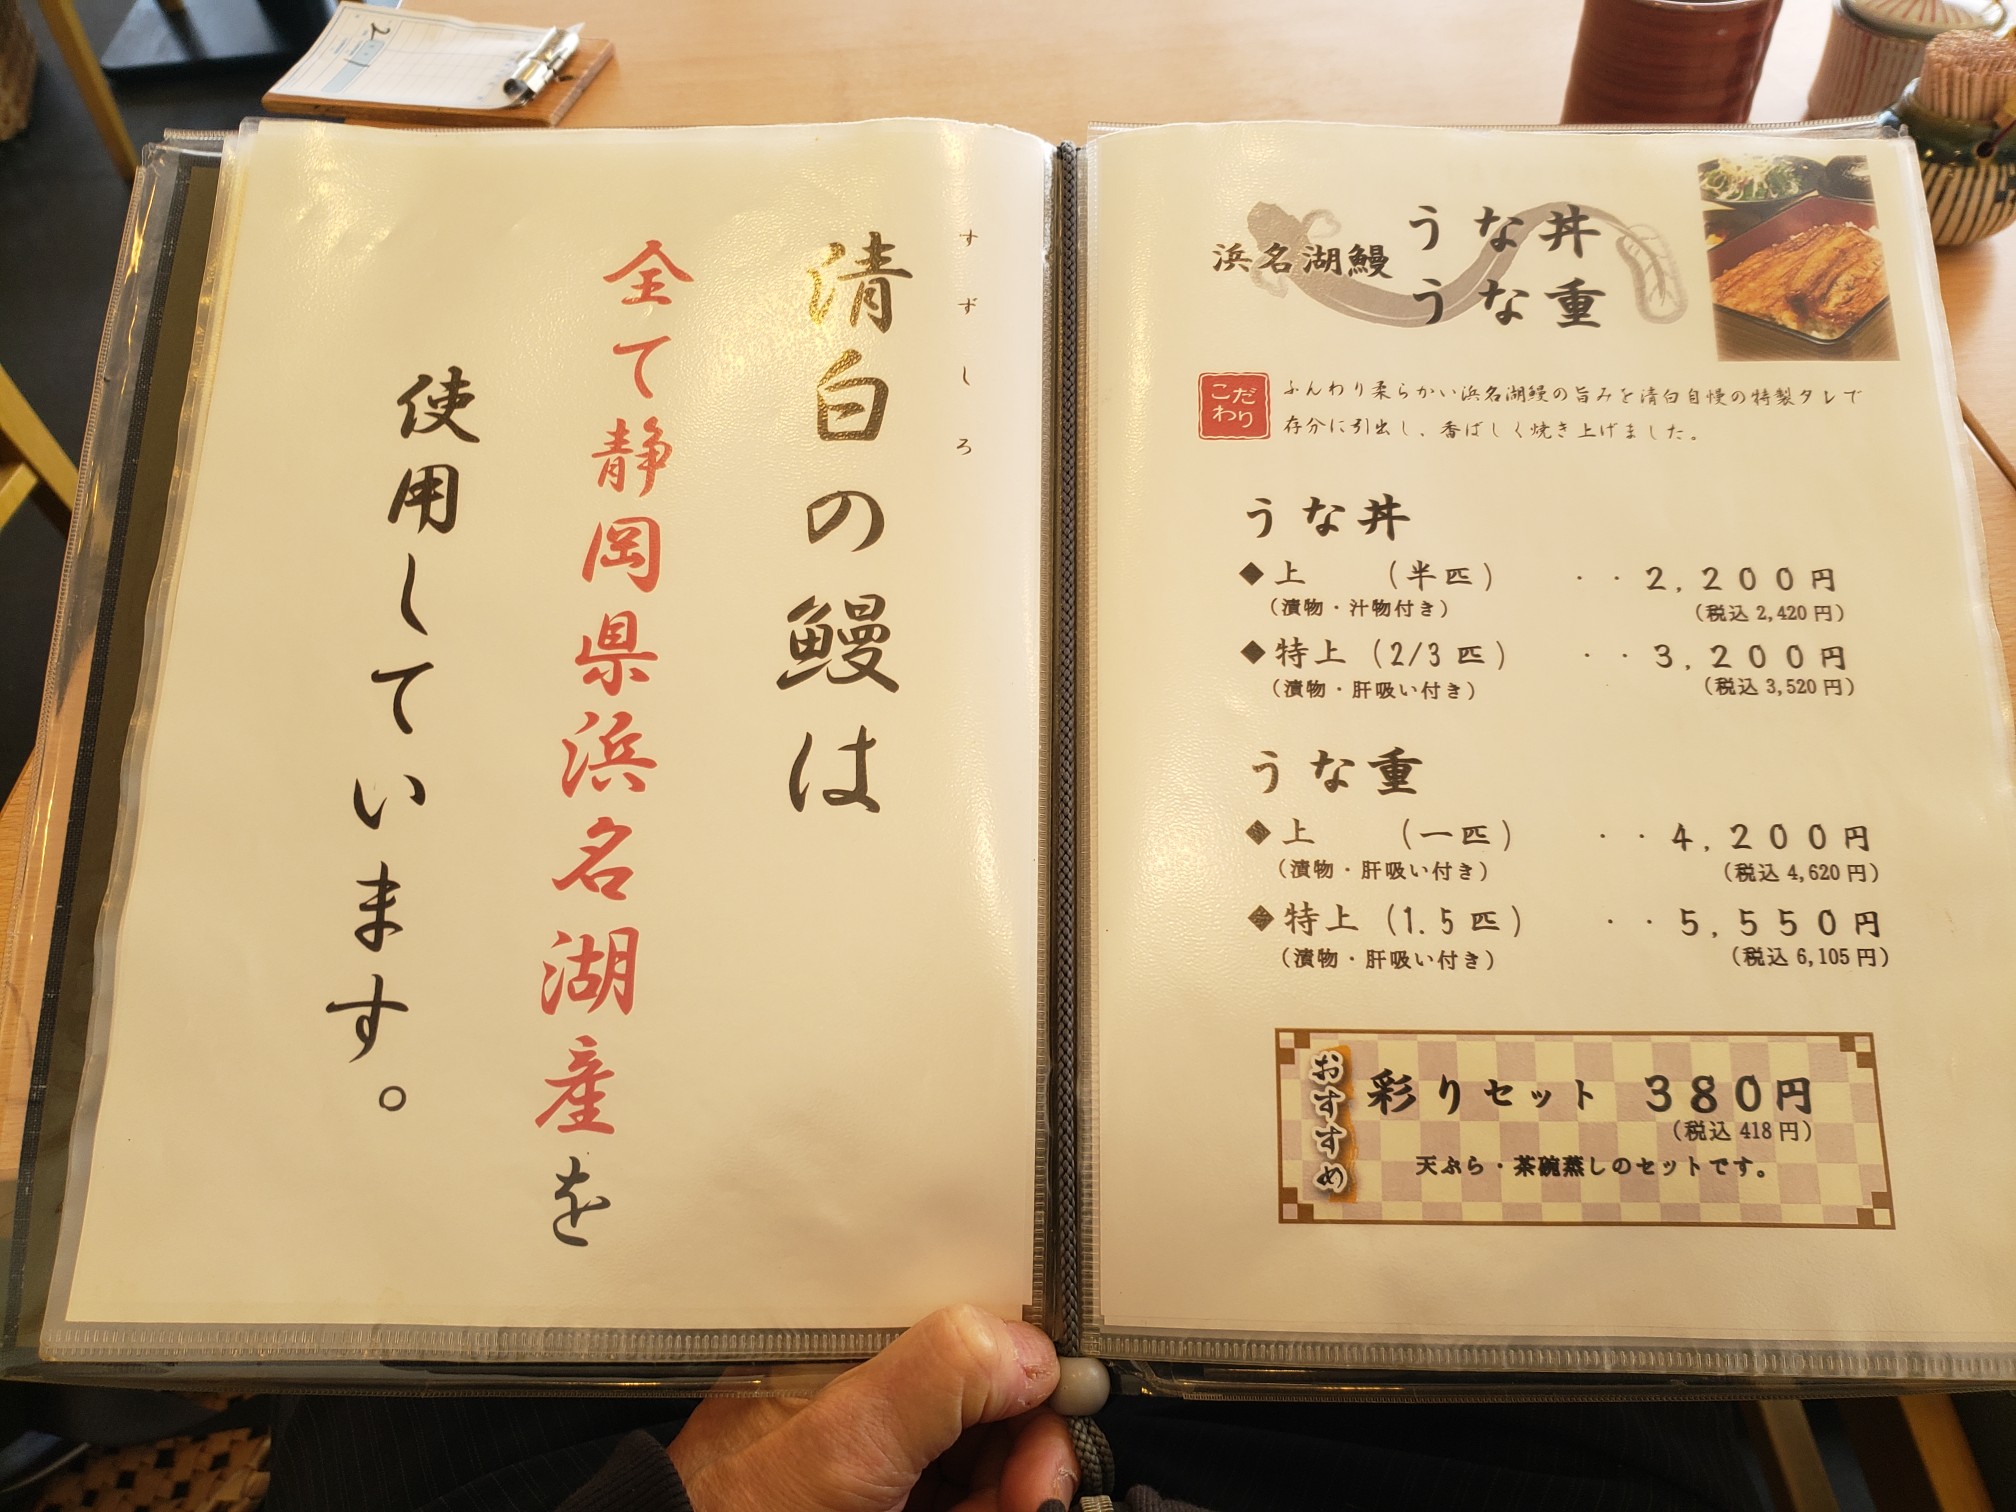 すずしろ
清白の鰻は
全て静岡県浜名湖産を
使用しています。
浜名湖鰻
うな丼
うな重
こだわり
ふんわり柔らかい浜名湖鰻の旨みを清白自慢の特製タレで
存分に引出し、香ばしく焼き上げました。
うな丼
◆上 (半匹) ・・2,200円
(漬物・汁物付き) (税込 2,420 円)
◆特上 (2/3 匹) ・・3,200円
(漬物・肝吸い付き) (税込 3,520 円)
うな重
◆上 (一匹) ・・4,200円
(漬物・肝吸い付き) (税込 4,620 円)
◆特上 (1.5 匹) ・・5,550円
(漬物・肝吸い付き) (税込 6,105 円)
おすすめ
彩りセット 380円
(税込 418 円)
天ぷら・茶碗蒸しのセットです。